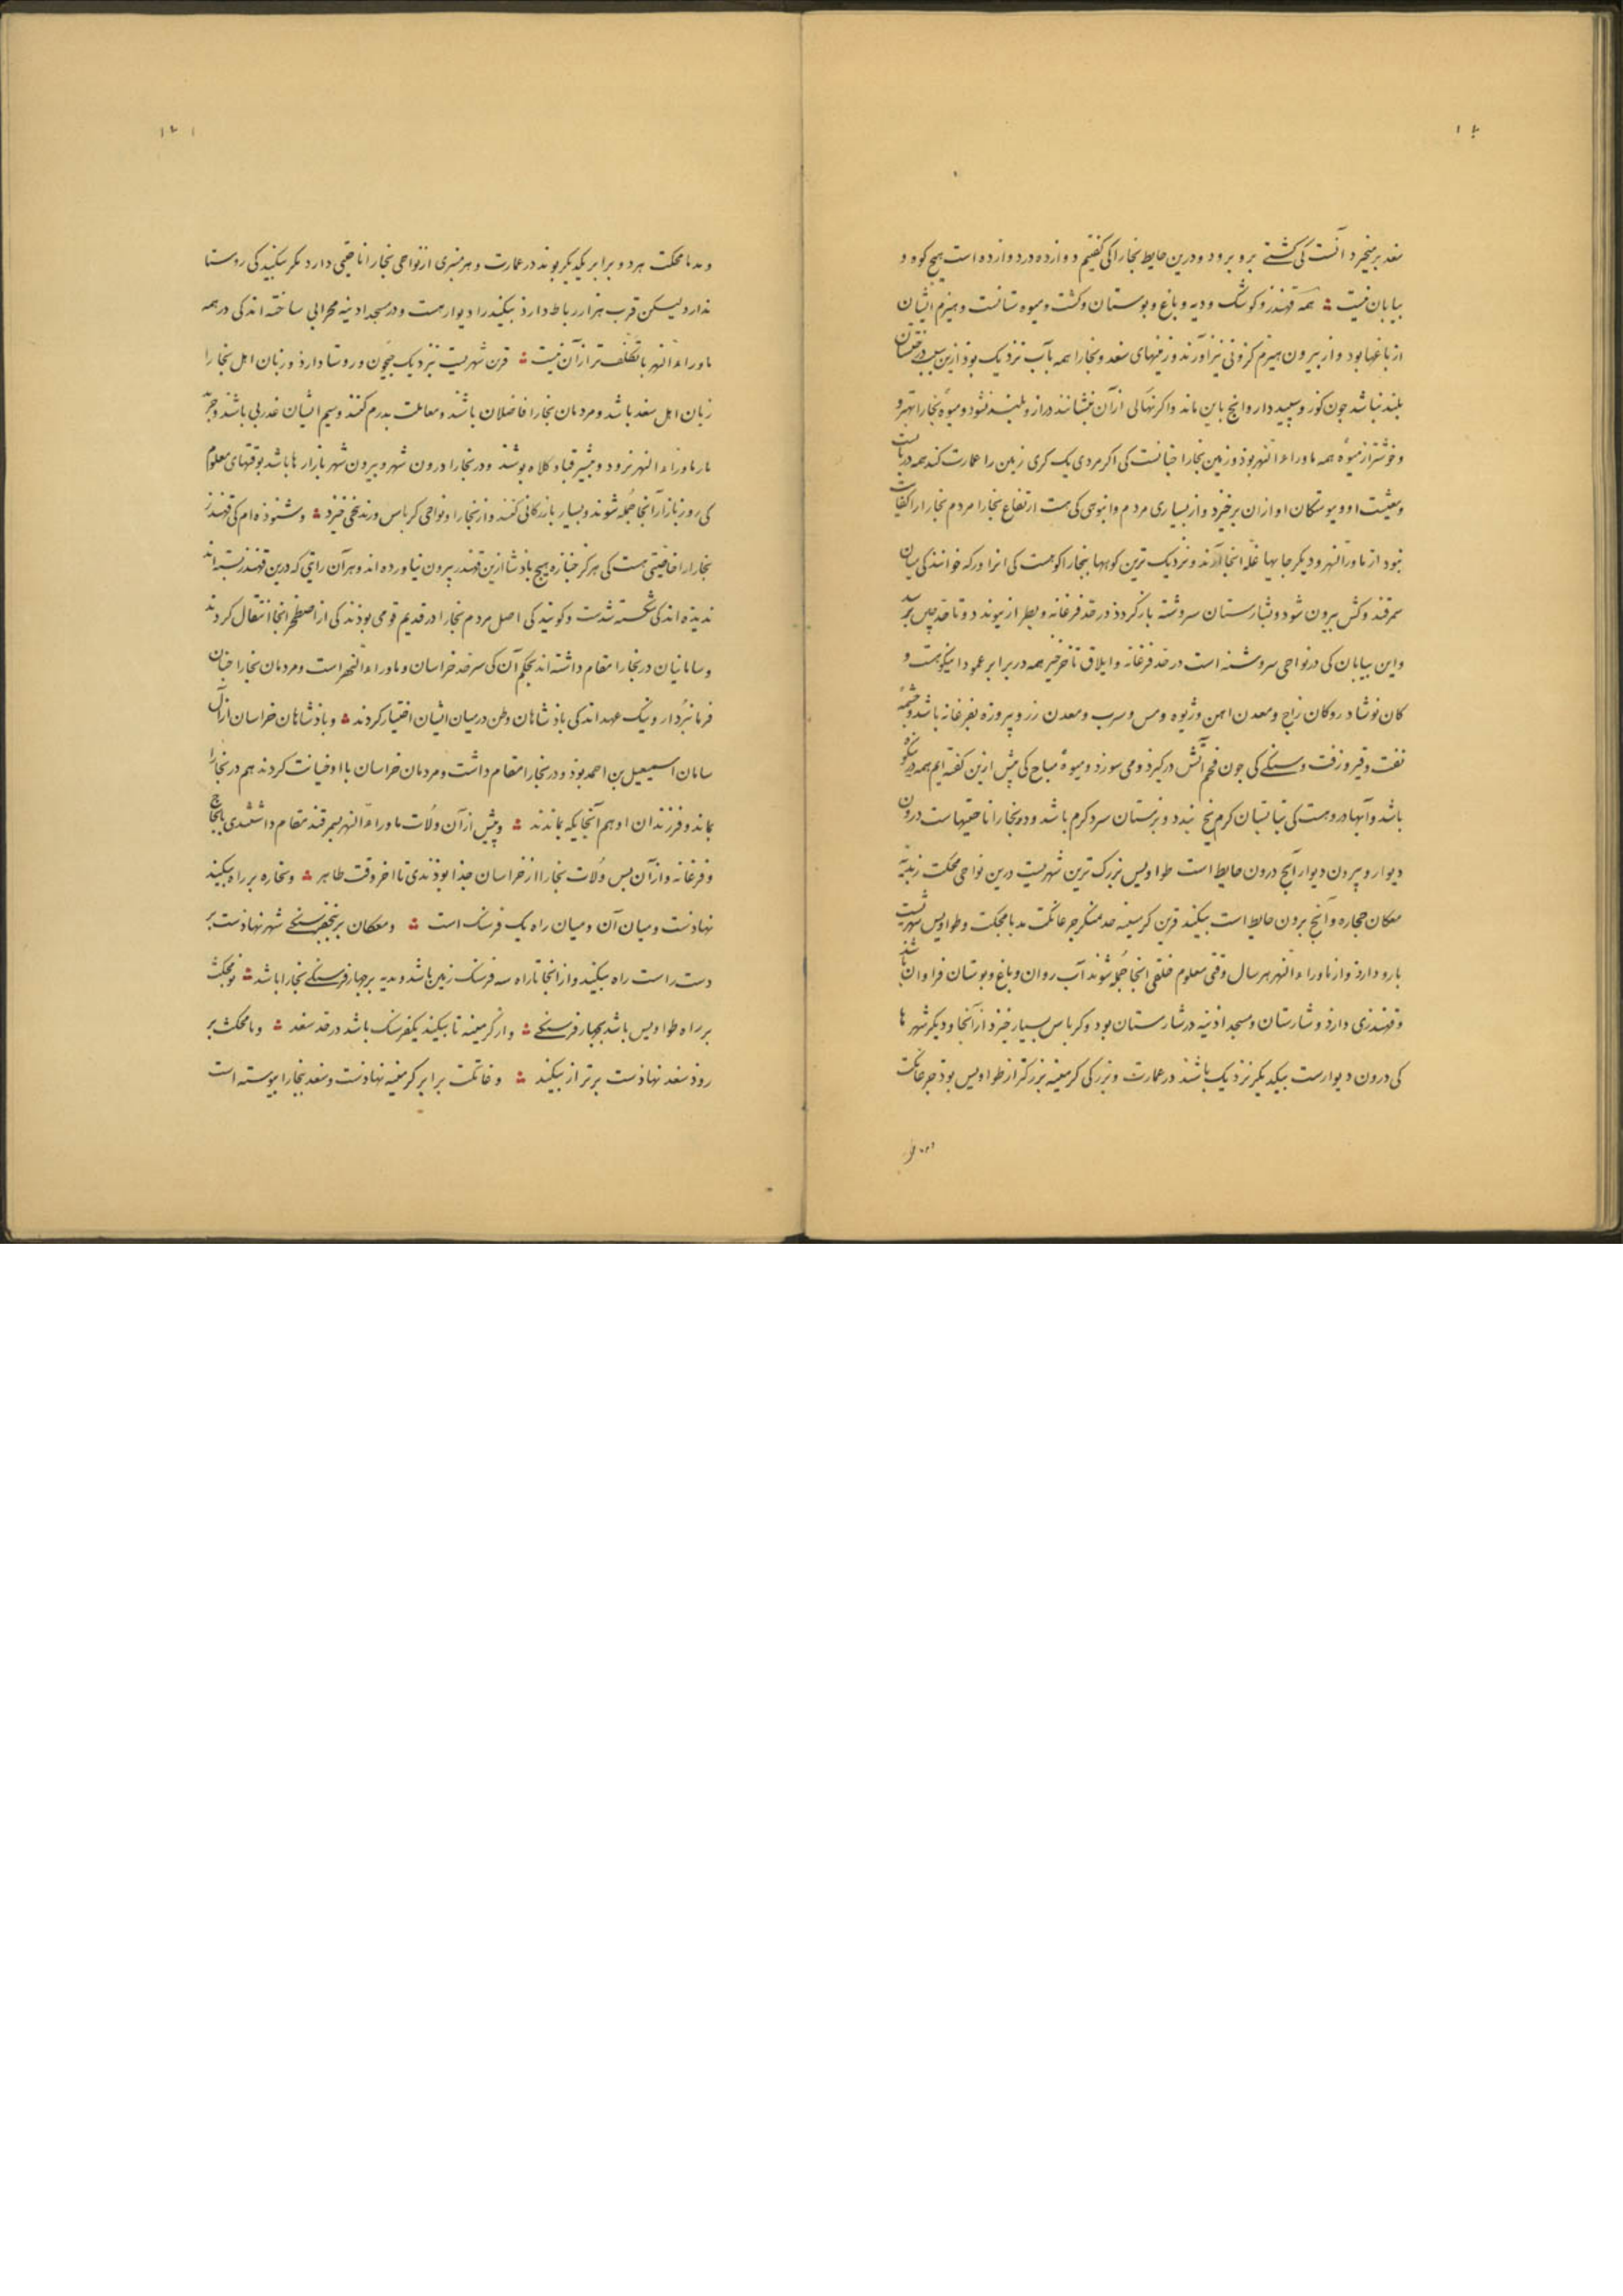 سغد برمیخرد آنست کی کشتے برو برود ودرین حایط بخارا کی کفتیم دوازده در دوازده است هیچ کوه و
بیابان نیست ؞ همه قهندز و کوشک و دیه و باغ و بوستان و کشت و میوه ستانست و هیزم ایشان
از باغها بود و از بیرون هیزم کزونی نیز آورند و زمینهای سغد و بخارا همه بآب نزدیک بود ازین سبب درختشان
بلند نباشد جون کوز و سپید دار وانچ باین ماند واکر نهالی ازآن بنشانند دراز و بلند نشود و میوه بخارا بهتر و
و خوشتر از میوه همه ماوراءالنهر بوذ و زمین بخارا جنانست کی اکر مردی یک کری زمین را عمارت کند همه در بایست
و معیشت او و پیوستکان او ازان برخیزد و از بسیاری مردم و انبوهی کی هست ارتفاع بخارا مردم بخارا را کفایت
نبود از ماوراالنهر و دیکر جایها غله انجا آرند و نزدیک ترین کوهها ببخارا کوهست کی انرا ورکه خوانند کی میان
سمرقند و کش بیرون شود و بشارستان سروشنه بازکردذ در حد فرغانه و بطراز پیوندد و تا حد چین برسد
واین بیابان کی در نواحی سروشنه است در حد فرغانه و ایلاق تا خرخیز همه در برابر عمود اینکوهست و
کان نوشادر و کان زاج و معدن اهن و ژیوه و مس و سرب و معدن زر و پیروزه بفرغانه باشد و چشمه
نفت و قیر و زفت و سنکے کی جون فحم آتش درکیرد و می سوزد و میوه مباح کی پیش ازین کفته ایم همه درینکوه
باشد و آبها درو هست کی بتابستان کرم یخ بندد و بزمستان سرد کرم باشد و در بخارا ناحیتهاست درون
دیوار و بیرون دیوار آنچ درون حایط است طواویس بزرک ترین شهریست درین نواحی مجکت زندنه
مغکان خجاره وآنچ برون حایط است بیکند قرین کرمینه خدیمنکن خرغانکت مدیامجکت و طواویس شهریست
بارو دارذ و از ماوراءالنهر هر سال وقتی معلوم خلقی انجا جمله شوند آب روان و باغ و بوستان فراوان باشند
و قهندزی دارذ و شارستان و مسجد آذینه در شارستان بود و کرباس بسیار خیزد از آنجا و دیکر شهرها
کی درون دیوارست بیکدیکر نزدیک باشند در عمارت و بزرکی کرمینه بزرکتر از طواویس بود خرغانکت
ومدیامجکت هر دو برابر یکدیکر بوند در عمارت و هر منبری از نواحی بخارا ناحیتی دارد مکر بیکند کی روستا
ندارد لیکن قرب هزار رباط دارذ بیکند را دیوار هست و در مسجد ادینه محرابی ساخته اند کی در همه
ماوراءالنهر باتکلف تر از آن نیست ؞ قرن شهریست نزدیک جیحون و روستا دارذ و زبان اهل بخارا
زبان اهل سغد باشد و مردمان بخارا فاضلان باشند و معاملت بدرم کنند و سیم ایشان غدرفی باشذ وجز
بار ماوراءالنهر نرود و بیشتر قبا و کلاه پوشند و در بخارا درون شهر و بیرون شهر بازارها باشد بوقتهای معلوم
کی روز بازار آنجا جمله شوند و بسیار بازرکانی کنند و از بخارا و نواحی کرباس و زندنجی خیزد ؞ و شنوذه ام کی قهندز
بخارا را خاصیتی هست کی هرکز جنازه هیچ باذشا ازین قهندز بیرون نیاورده اند و هر آن رایتی که درین قهندز بسته اند
ندیذه اند کی شکسته شدست و کویند کی اصل مردم بخارا در قدیم قومی بوذند کی از اصطخر انجا انتقال کردند
وسامانیان در بخارا مقام داشته اند بحکم آن کی سرحد خراسان و ماوراءالنهر است و مردمان بخارا جنان
فرمانبردار و نیک عهد اند کی باذشاهان وطن در میان ایشان اختیار کردند ؞ و باذشاهان خراسان از آل
سامان اسمعیل بن احمد بوذ و در بخارا مقام داشت و مردمان خراسان با او خیانت کردند هم در بخارا
بماند و فرزندان او هم آنجایکه بماندند ؞ و پیش از آن ولات ماوراءالنهر بسمرقند مقام داشتندی یا بچاج
و فرغانه و از آن پس ولات بخارا از خراسان جذا بوذندی تا اخر وقت طاهر ؞ و خجاره بر راه بیکند
نهادست و میان آن و میان راه یک فرسنک است ؞ و مغکان بر پنج فرسنکے شهر نهادست بر
دست راست راه بیکند و از انجا تا راه سه فرسنک زمین باشد و مدیه بر جهار فرسنکے بخارا باشد ؞ نومجکث
بر راه طواویس باشد بجهار فرسنکے ؞ و از کرمینه تا بیکند یکفرسنک باشد در حد سغد ؞ و مجکث بر
روذ سغد نهاذست برتر از بیکند ؞ و خرغانکت برابر کرمینه نهادست و سغد ببخارا پیوسته است